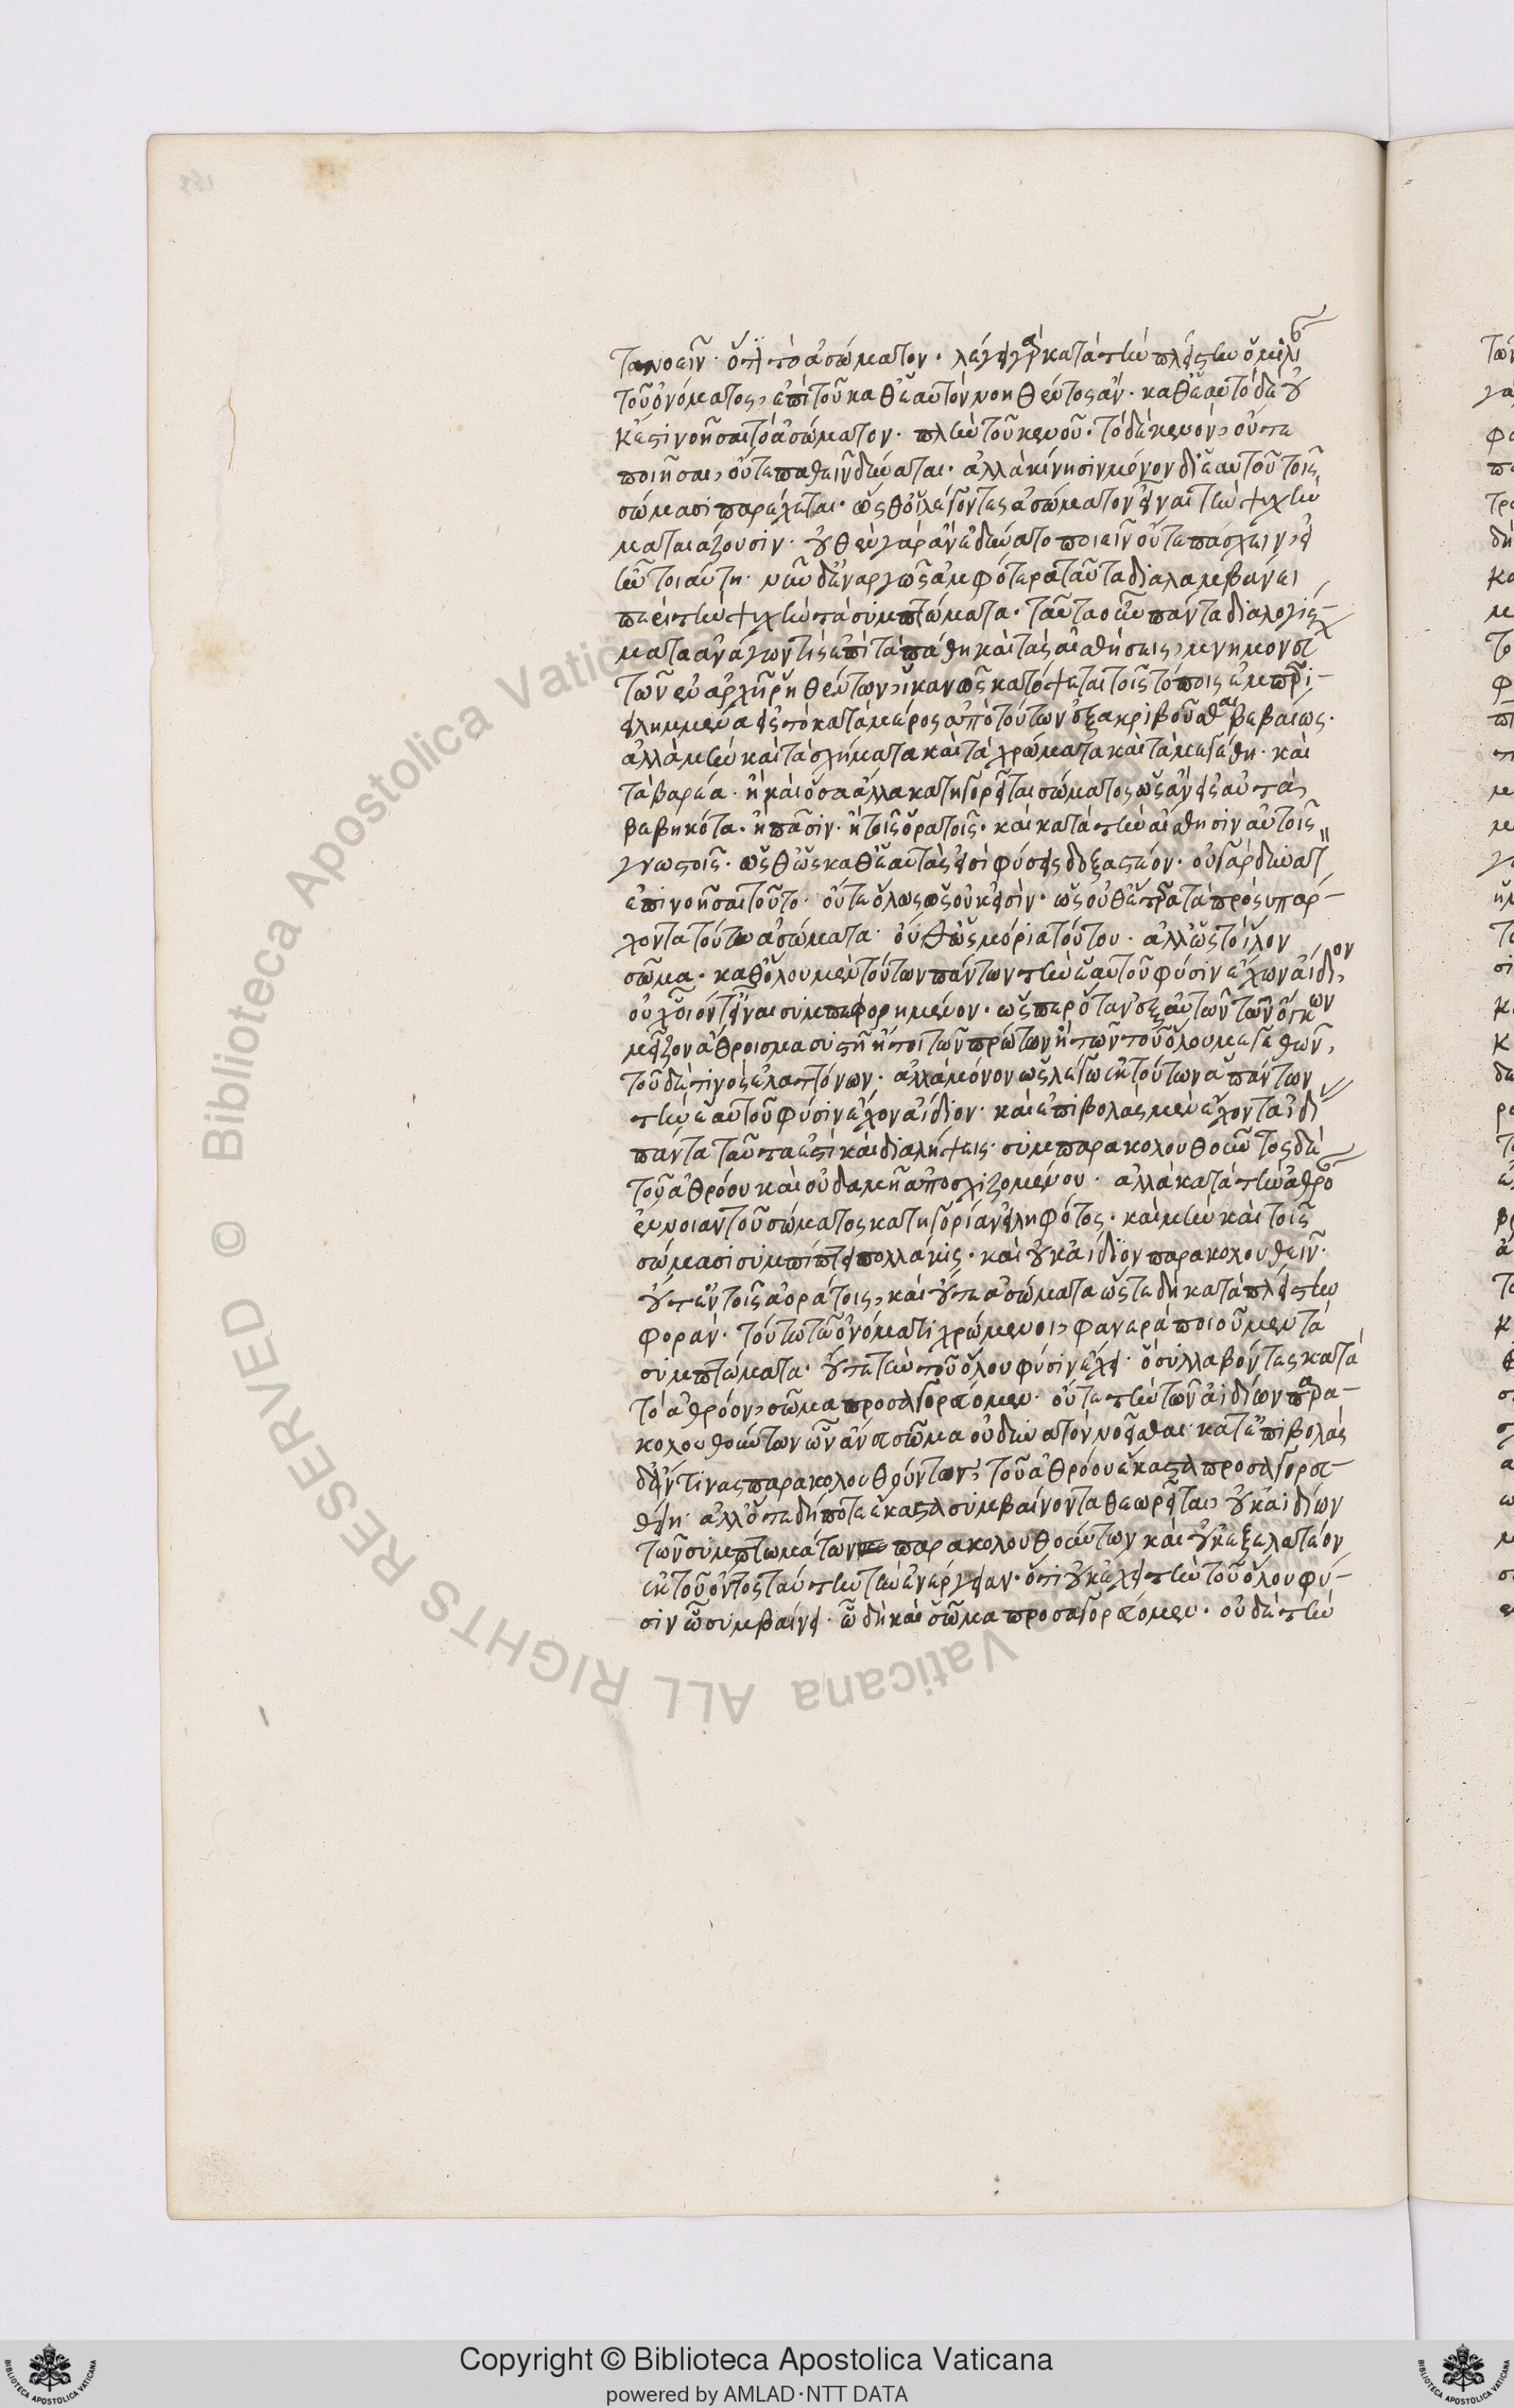 τανοεῖν· ὅτι τὸ ἀσώματον· λέγει γὰρ κατὰ τὴν πλείστην ὁμιλί
τοῦ ὀνόματος, ἐπὶ τοῦ καθ' ἑαυτὸν νοηθέντος ἄν· καθ' ἑαυτὸ δὲ οὐ
κ ἔστι νοῆσαι τὸ ἀσώματον· πλὴν τοῦ κενοῦ· τὸ δὲ κενόν, οὔτε
ποιῆσαι, οὔτε παθεῖν δύναται· ἀλλὰ κίνησιν μόνον δι' ἑαυτοῦ τοῖς
σώμασι παρέχεται· ὥσθ' οἱ λέγοντες ἀσώματον εἶναι τὴν ψυχὴν
ματαιάζουσιν· οὐθὲν γὰρ ἂν ἐδύνατο ποιεῖν οὔτε πάσχειν, εἰ
ἦν τοιαύτη· νῦν δ' ἐναργῶς ἀμφότερα ταῦτα διαλαμβάνει
περὶ τὴν ψυχὴν τὰ συμπτώματα· ταῦτα οὖν πάντα διαλογίσ
ματα ἀνάγων τις ἐπὶ τὰ πάθη καὶ τὰς αἰσθήσεις, μνημονευ
τῶν ἐν ἀρχῇ ῥηθέντων, ἱκανῶς κατόψεται τοῖς τύποις ἐμπερι-
ειλημμένα εἰς τὸ κατὰ μέρος ἀπὸ τούτων ἐξακριβοῦσθαι βεβαίως·
ἀλλὰ μὴν καὶ τὰ σχήματα καὶ τὰ χρώματα καὶ τὰ μεγέθη· καὶ
τὰ βαρέα· ἢ καὶ ὅσα ἄλλα κατηγορεῖται σώματος ὡς ἂν εἰς αὐτὰ
βεβηκότα· ἢ πᾶσιν· ἢ τοῖς ὁρατοῖς· καὶ κατὰ τὴν αἴσθησιν αὐτοῖς
γνωστοῖς· ὥσθ' ὡς καθ' ἑαυτάς εἰσι φύσεις δοξαστέον· οὐ γὰρ δύνατ
ἐπινοῆσαι τοῦτο· οὔτε ὅλως ὡς οὐκ εἰσίν· ὡς οὐθ' ἕτερα τὰ προσυπάρ-
χοντα τούτω ἀσώματα· οὔθ' ὡς μόρια τούτου· ἀλλ' ὡς τὸ ὅλον
σῶμα· καθόλου μὲν τούτων πάντων τὴν ἑαυτοῦ φύσιν ἔχων ἀίδιον,
οὐχ οἷόν τ' εἶναι συμπεφορημένον· ὥσπερ ὅταν ἐξ αὐτῶν τῶν ὄγκων
μεῖζον ἄθροισμα συστῇ ἤτοι τῶν πρώτων ἢ τῶν τοῦ ὅλου μεγεθῶν,
τοῦδέ τινος ἐλαττόνων· ἀλλὰ μόνον ὡς λέγω ἐκ τούτων ἁπάντων
τὴν ἑαυτοῦ φύσιν ἔχον ἀίδιον· καὶ ἐπιβολὰς μὲν ἔχοντα ἰδί
πάντα ταῦτα ἐστὶ καὶ διαλήψεις· συμπαρακολουθοῦντος δὲ
τοῦ ἀθρόου καὶ οὐδαμῇ ἀποσχιζομένου· ἀλλὰ κατὰ τὴν ἀθρό
ἔννοιαν τοῦ σώματος κατηγορίαν εἰληφότος· καὶ μὴν καὶ τοῖς
σώμασι συμπίπτει πολλάκις· καὶ οὐκ ἀίδιον παρακολουθεῖν·
οὔτ' ἐν τοῖς ἀοράτοις, καὶ οὔτε ἀσώματα ὥστε δὴ κατὰ πλείστην
φοράν· τούτω τῶ ὀνόματι χρώμενοι, φανερὰ ποιοῦμεν τὰ
συμπτώματα· οὔτε τὴν τοῦ ὅλου φύσιν ἔχει· ὃ συλλαβόντες κατὰ
τὸ ἀθρόον, σῶμα προσαγορεύομεν· οὔτε τὴν τῶν ἀιδίων παρα-
κολουθούντων ὧν ἄνευ σῶμα οὐ δυνατὸν νοεῖσθαι· κατ' ἐπιβολὰς
δ' ἄν τινας παρακολουθούντων, τοῦ ἀθρόου ἕκαστα προσαγορευ
θείη· ἀλλ' ὅτε δήποτε ἕκαστα συμβαίνοντα θεωρεῖται, οὐκ ἀιδίων
τῶν συμπτωμάτων παρακολουθούντων καὶ οὐκ ἐξελατέον
ἐκ τοῦ ὄντος ταύτην τὴν ἐνάργειαν· ὅτι οὐκ ἔχει τὴν τοῦ ὅλου φύ-
σιν ᾧ συμβαίνει· ᾧ δὴ καὶ σῶμα προσαγορεύομεν· οὐδὲ τὴν
Copyright © Biblioteca Apostolica Vaticana
powered by AMLAD·NTT DATA